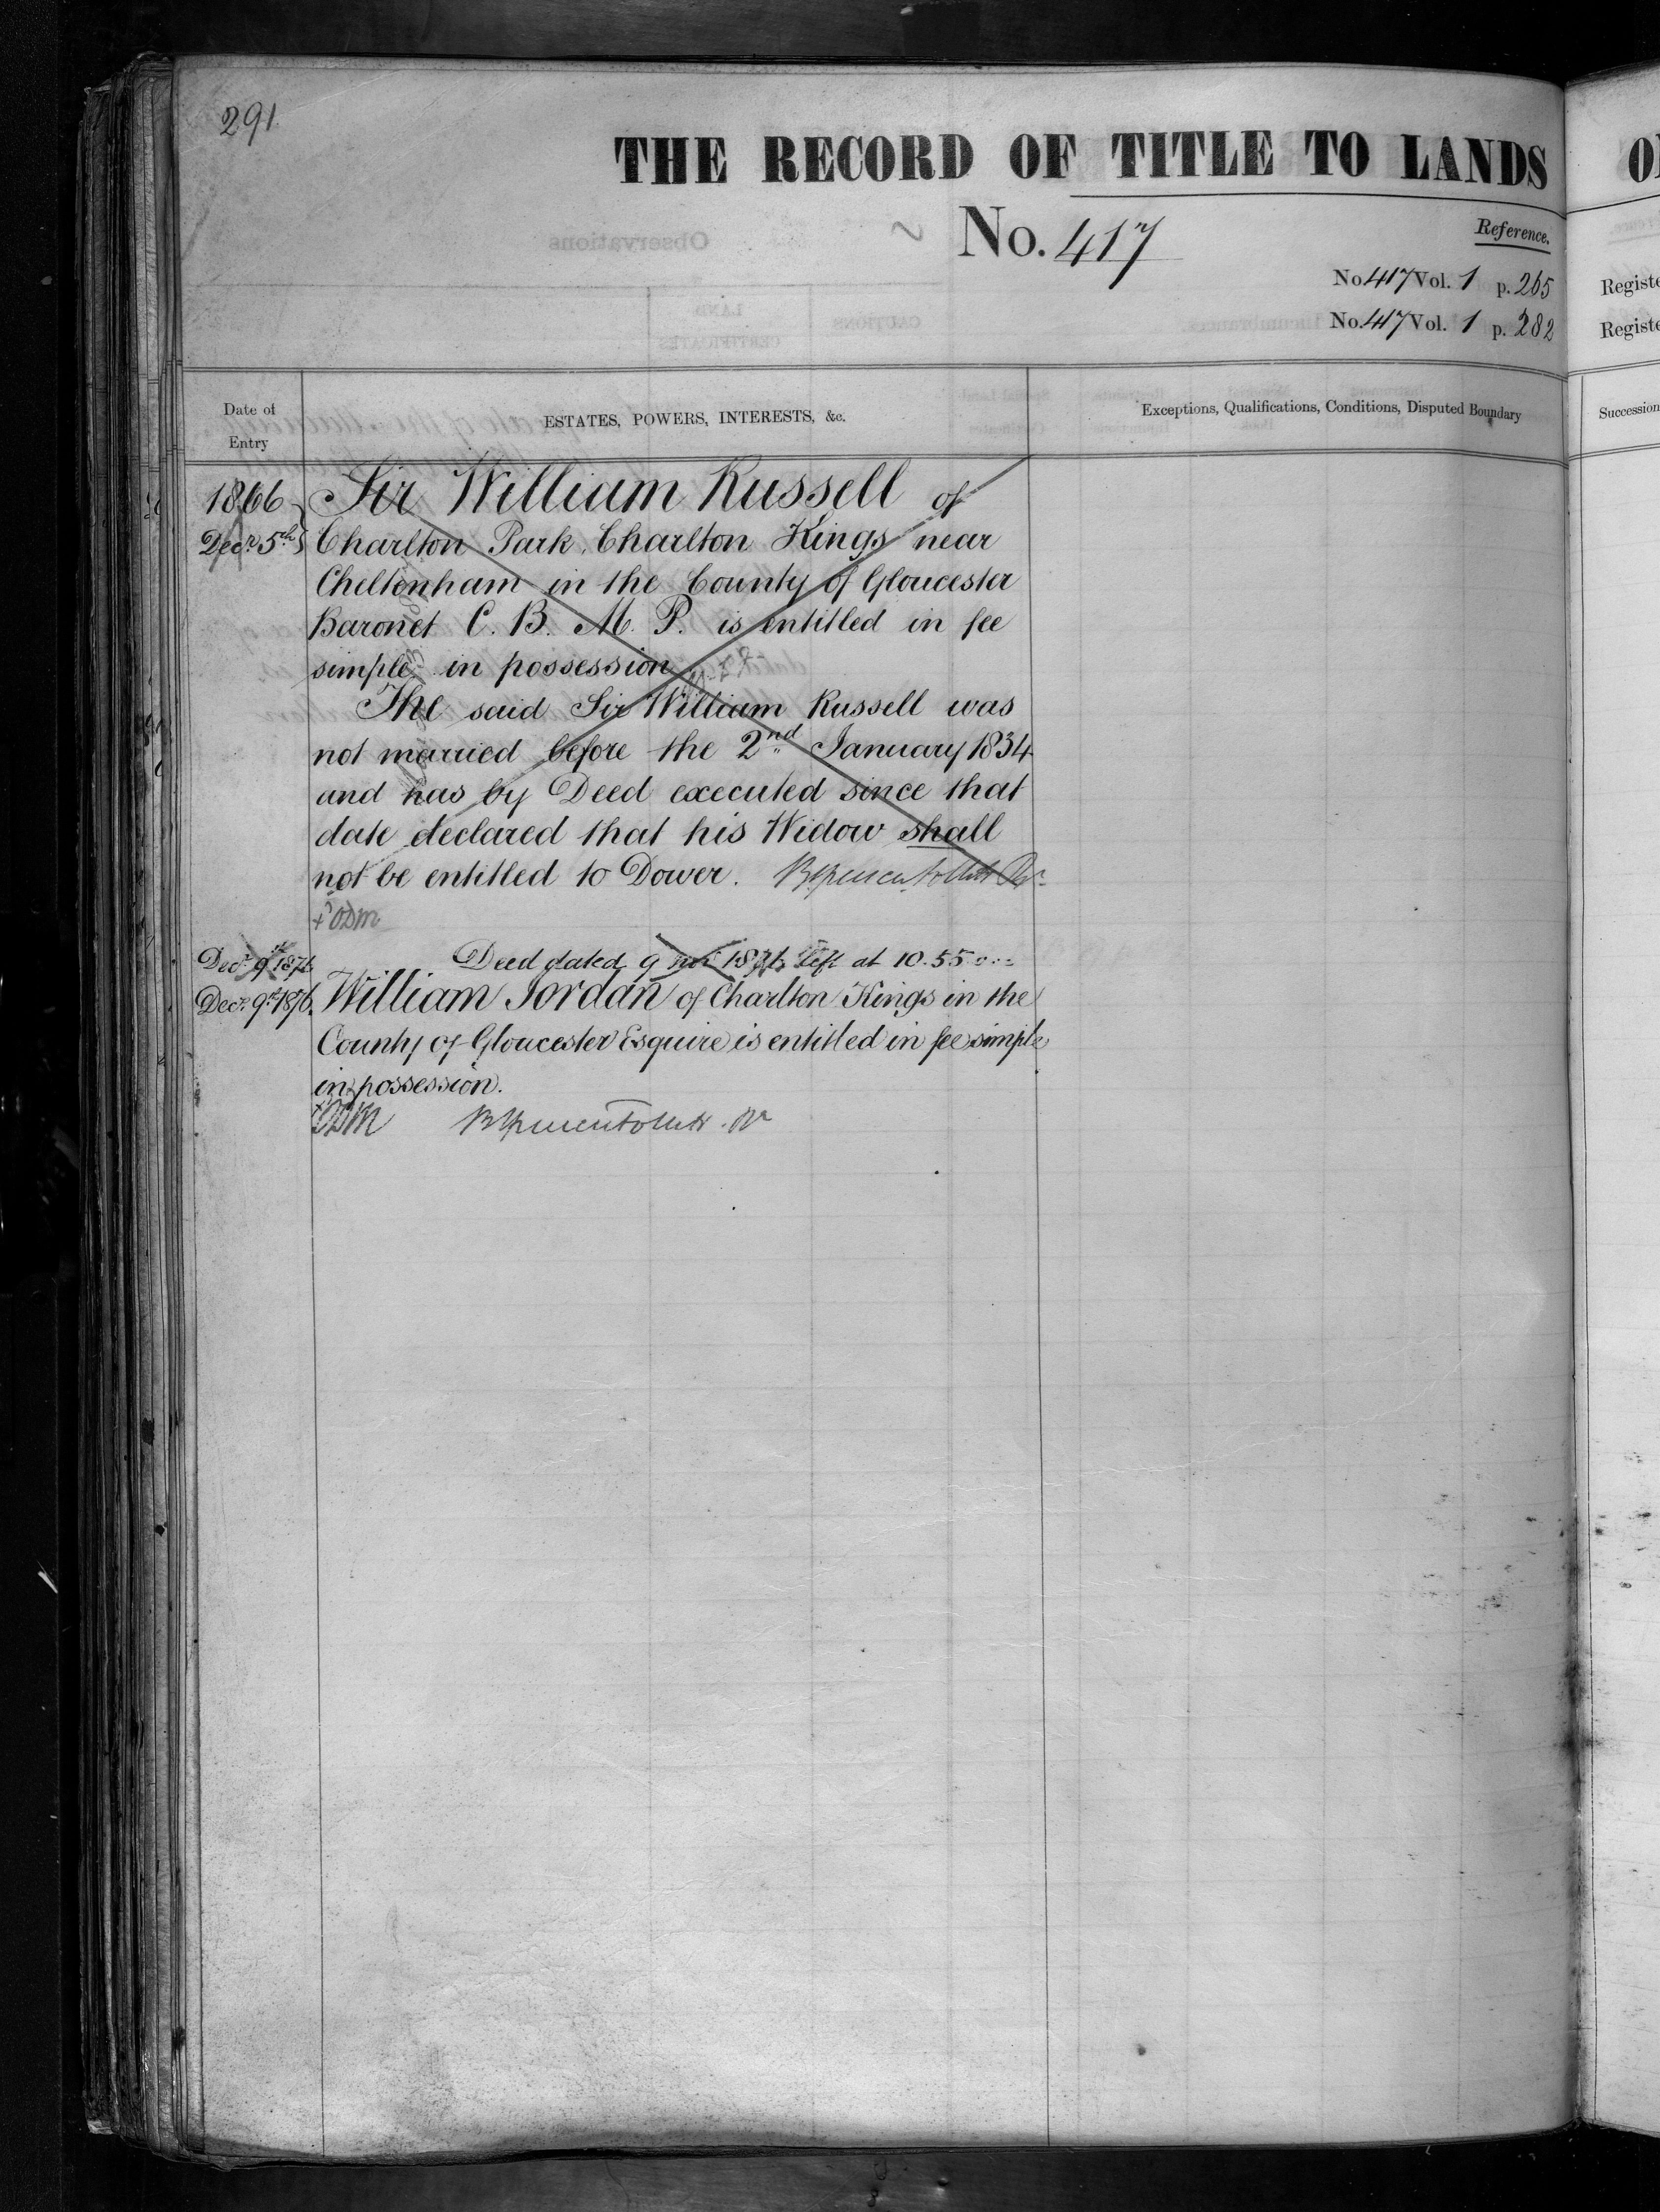 291
THE RECORD OF TITLE TO LANDS
No. 417
Reference.
No 417 Vol. 1 p. 265
No. 417 Vol. 1 p. 282
Registe
Registe
Date of
Entry
ESTATES, POWERS, INTERESTS, &c.
Exceptions, Qualifications, Conditions, Disputed Boundary
Succession
1866
Decr. 5th
Sir William Russell of
Charlton Park, Charlton Kings near
Cheltenham in the County of Gloucester
Baronet C. B. M. P. is entitled in fee
simple in possession
The said Sir William Russell was
not married before the 2nd January 1834
and has by Deed executed since that
date declared that his Widow shall
not be entitled to Dower.
Decr. 9th 1876
Deed dated 9 1876 left at 10.55
Decr. 9th 1876.
William Jordan of Charlton Kings in the
County of Gloucester Esquire is entitled in fee simple
in possession.